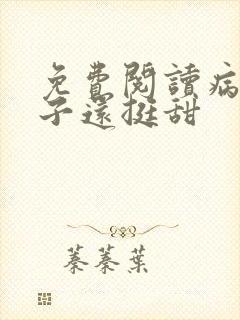 免費閱讀病
子還挺甜
蓁蓁葉